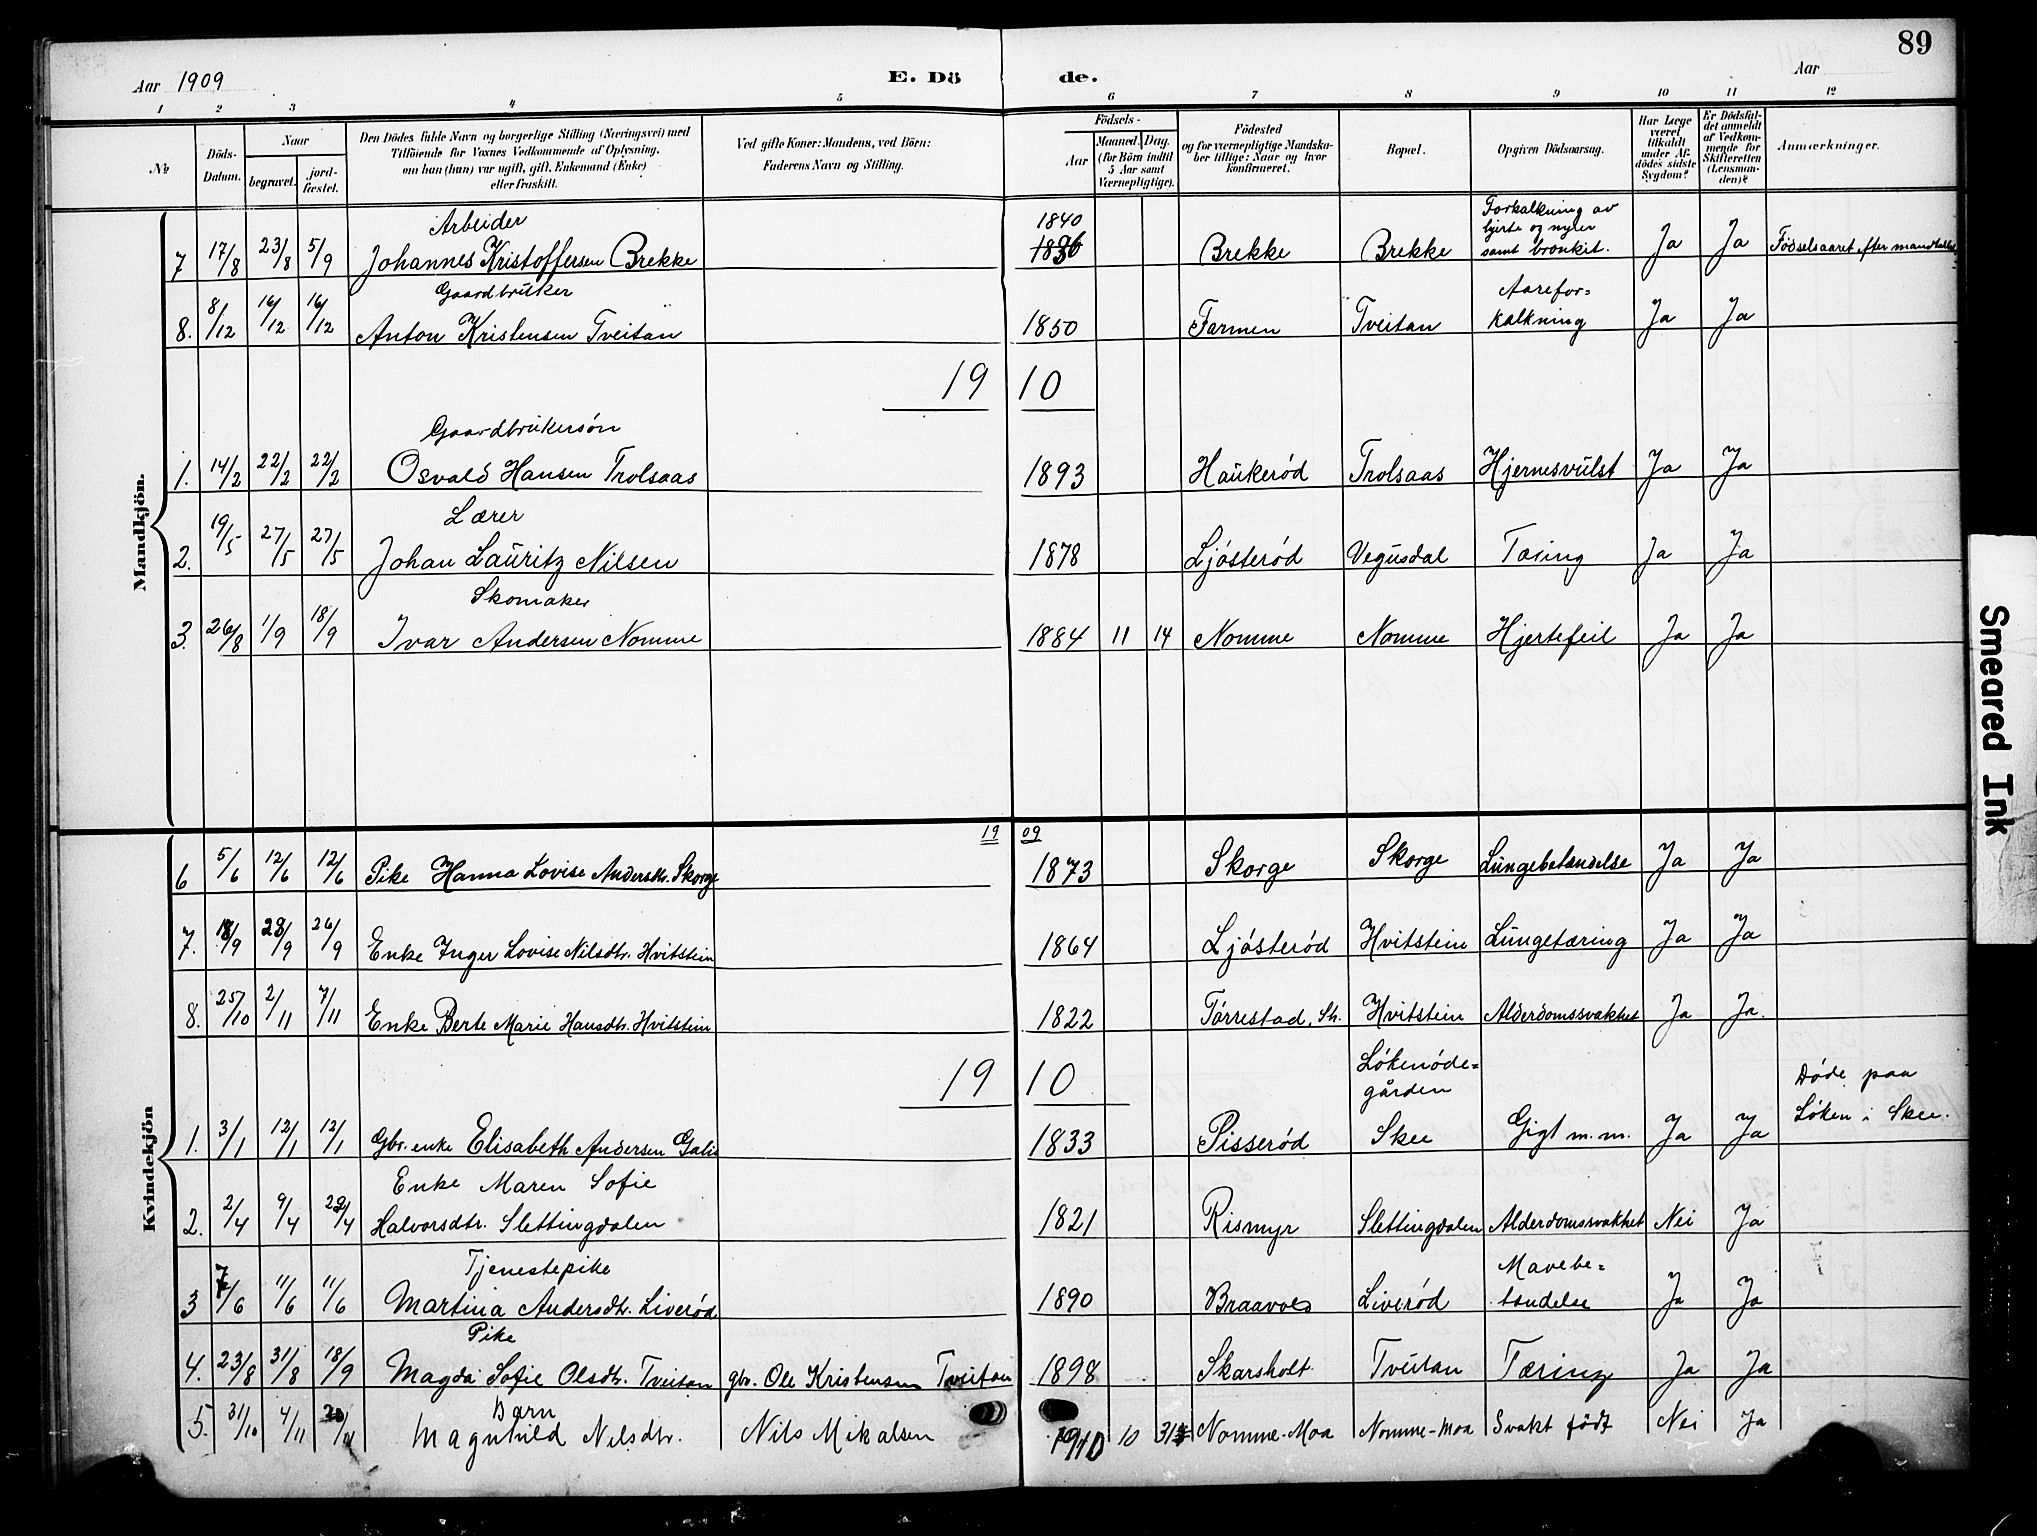 89
Aar 1909 E. Dö de. Aar
1 2 3 4 5 6 7 8 9 10 11 12
No
Döds-Datum.
Naar
begravet. jord-fæstet.
Den Dödes fulde Navn og borgerlige Stilling (Næringsvei) med
Tilföiende for Voxnes Vedkommende af Oplysning,
om han (hun) var ugift, gift, Enkemand (Enke)
eller fraskilt.
Ved gifte Koner: Mandens, ved Börn:
Faderens Navn og Stilling.
Födsels-
Aar Maaned. Dag.
(for Börn indtil
5 Aar samt
Værnepligtige).
Födested
og for værnepligtige Mandska-
ber tillige: Naar og hvor
konfirmeret.
Bopæl.
Opgiven Dödsaarsag.
Har Læge
været
tilkaldt
under Af-
dödes sidste
Sygdom?
Er Dödsfal-
det anmeldt
af Vedkom-
mende for
Skifteretten
(Lensman-
den)?
Anmærkninger.
Mandkjön.
Arbeider 1840 Forkalkning av
hjerte og nyrer
7 17/8 23/8 5/9 Johannes Kristoffersen Brekke 1836 Brekke Brekke samt bronkit. Ja Ja Fødselsaaret efter mandtallet
Gaardbruker Aarefor-
8. 8/12 16/12 16/12 Anton Kristensen Tveitan 1850 Farmen Tveitan kalkning Ja Ja
19 10
Gaardbrukersøn
1. 14/2 22/2 22/2 Osvald Hansen Trolsaas 1893 Haukerød Trolsaas Hjernesvulst Ja Ja
Lærer
2. 19/5 27/5 27/5 Johan Lauritz Nilsen 1878 Ljøsterød Vegusdal Tæring Ja Ja
Skomaker
3. 26/8 1/9 18/9 Ivar Andersen Nomme 1884 11 14 Nomme Nomme Hjertefeil Ja Ja
Smeared Ink
Kvindekjön
19 09
6 5/6 12/6 12/6 Pike Hanna Lovise Andersdtr. Skorge 1873 Skorge Skorge Lungebetændelse Ja Ja
7. 18/9 28/9 26/9 Enke Inger Lovise Nilsdtr. Hvitstein 1864 Ljøsterød Hvitstein Lungetæring Ja Ja
8. 25/10 2/11 7/11 Enke Berte Marie Hansdtr. Hvitstein 1822 Tørrestad, Sh. Hvitstein Alderdomssvakhet Ja Ja.
19 10 Løkenøde=
gården Døde paa
Løken i Skee.
1. 3/1 12/1 12/1 Gbr. enke Elisabeth Andersen Galis 1833 Pisserød Skee Gigt m.m. Ja Ja
Enke Maren Sofie
2. 2/4 9/4 29/4 Halvorsdtr. Slettingdalen 1821 Rismyr Slettingdalen Alderdomssvakhet Nei Ja
Tjenestepike Mavebe=
3 7/6 11/6 11/6 Martina Andersdtr. Liverød 1890 Braavold Liverød tændelse Ja Ja
Pike
4. 23/8 31/8 18/9 Magda Sofie Olsdtr. Tveitan gbr. Ole Kristensen Tveitan 1898 Skarsholt Tveitan Tæring Ja Ja
Barn
5. 31/10 4/11 Magnhild Nilsdtr. Nils Mikalsen 1910 10 31 Nomme-Moa Nomme-Moa Svakt født Nei Ja